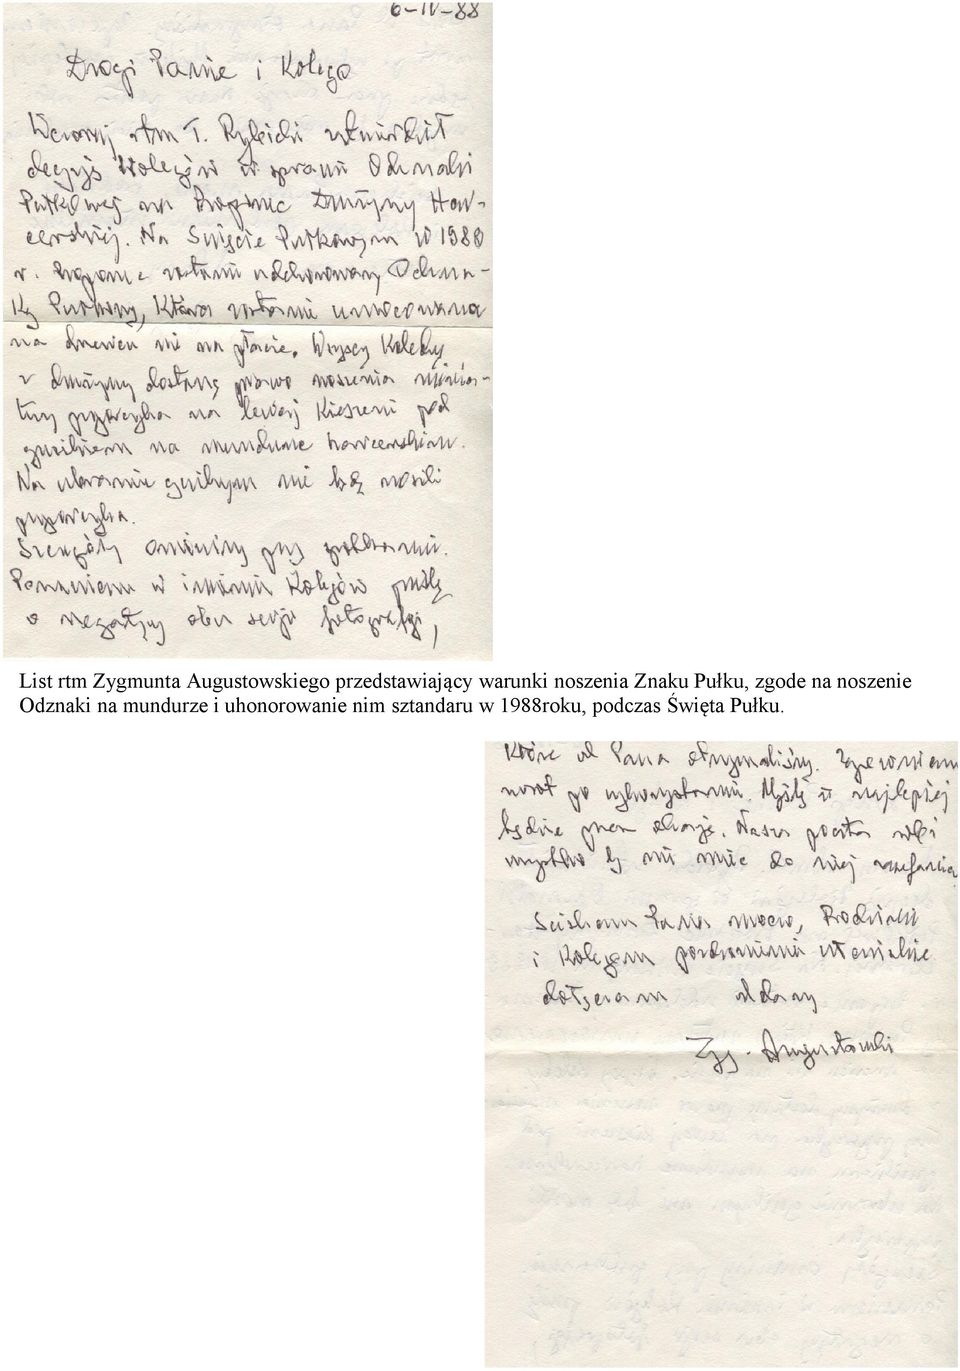 6-IV-88
Drogi Panie i Kolego
Wczoraj rtm T. Rylecki utwierdził
decyzję Kolegów w sprawie Odznaki
Pułkowej na Proporzec Drużyny Har-
cerskiej. Na Święcie Pułkowym w 1988
r. Proporzec zostanie udekorowany Odzna-
ką Pułkową, która zostanie umocowana
na drzewcu nie na płacie. Wszyscy Koledzy
z drużyny dostaną prawo noszenia minia-
tury proporczyka na lewej kieszeni pod
guzikiem na mundurze harcerskim.
Na ubraniu cywilnym nie będą nosili
proporczyka.
Szczegóły omówimy przy spotkaniu.
Ponownie w imieniu Kolegów proszę
o negatywy obu serii fotografii,
List rtm Zygmunta Augustowskiego przedstawiający warunki noszenia Znaku Pułku, zgode na noszenie
Odznaki na mundurze i uhonorowanie nim sztandaru w 1988roku, podczas Święta Pułku.
Które od Pana otrzymaliśmy. Zapewniam
zwrot po wykorzystaniu. Myślę że najlepiej
będzie przez okazję. Nasza poczta robi
wszystko by nie mieć do niej zaufania
Ściskam Pana mocno, Rodzinie
i Kolegom pozdrowienia serdeczne
dołączam oddany
Zyg. Augustowski